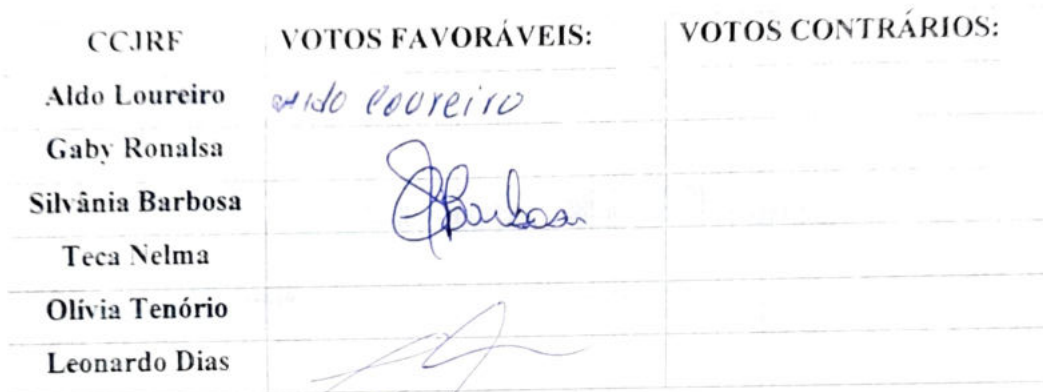 CCJRF VOTOS FAVORÁVEIS: VOTOS CONTRÁRIOS:
Aldo Loureiro aldo loureiro
Gaby Ronalsa
Silvânia Barbosa SBarbosa
Teca Nelma
Olívia Tenório
Leonardo Dias